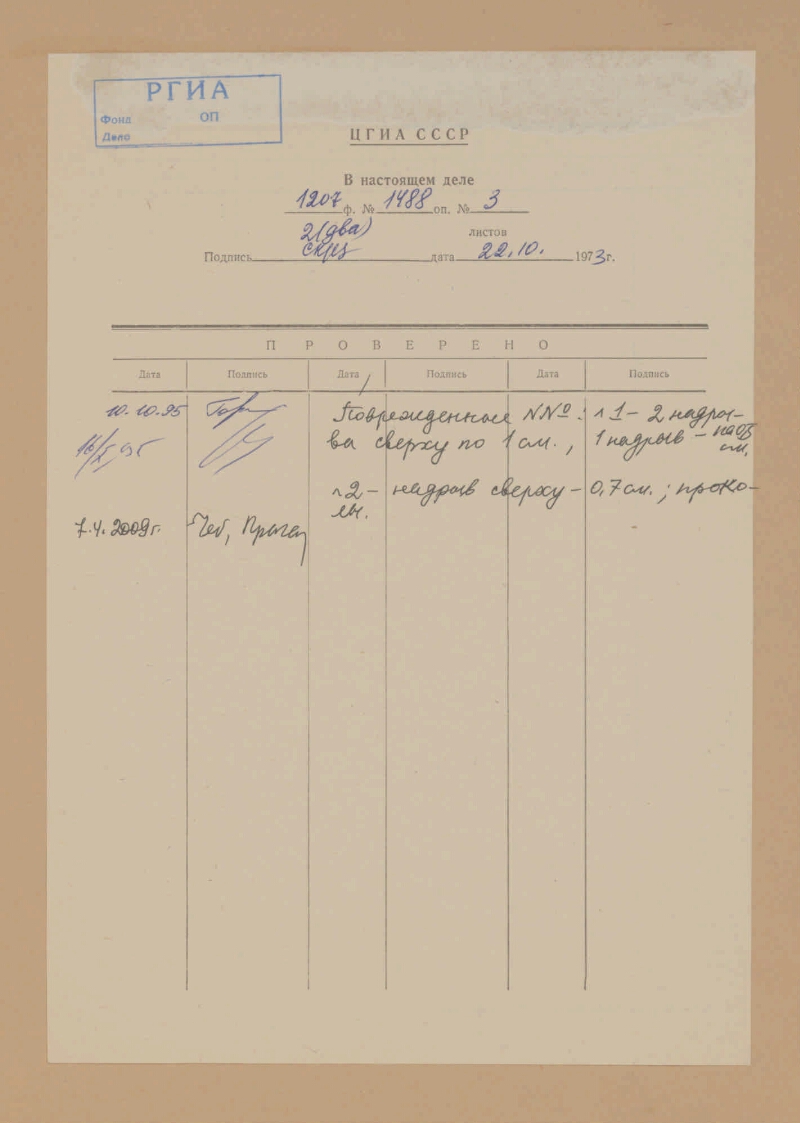 РГИА
Фонд ОП
Дело
ЦГИА СССР
В настоящем деле
1207 ф. № 1488 оп. № 3
2 (два) листов
Подпись дата 22.10. 1973 г.
ПРОВЕРЕНО
Дата Подпись Дата Подпись Дата Подпись
10.10.95 Поврежденные NNº: л 1 – 2 надры-
ва сверху по 1 см., 1 надрыв –
см,
л 2 – надрыв сверху – 0,7 см.; проко-
лы.
7.4. 2009 г.